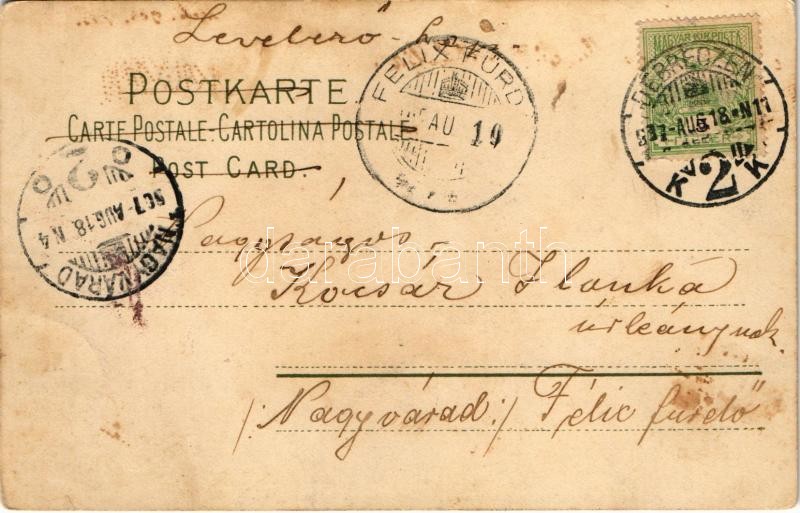 Levelező-lap
POSTKARTE
CARTE POSTALE-CARTOLINA POSTALE
POST CARD.
FELIX FÜRDŐ
AU 19
MAGYAR KIR. POSTA
DEBRECZEN
AUG 18 N11
2
NAGYVÁRAD
907 AUG. 18. N. 4
2
Nagyságos
Kocsár Ilonka
úrleánynak
/: Nagyvárad :/ Félix fürdő"
darabanth